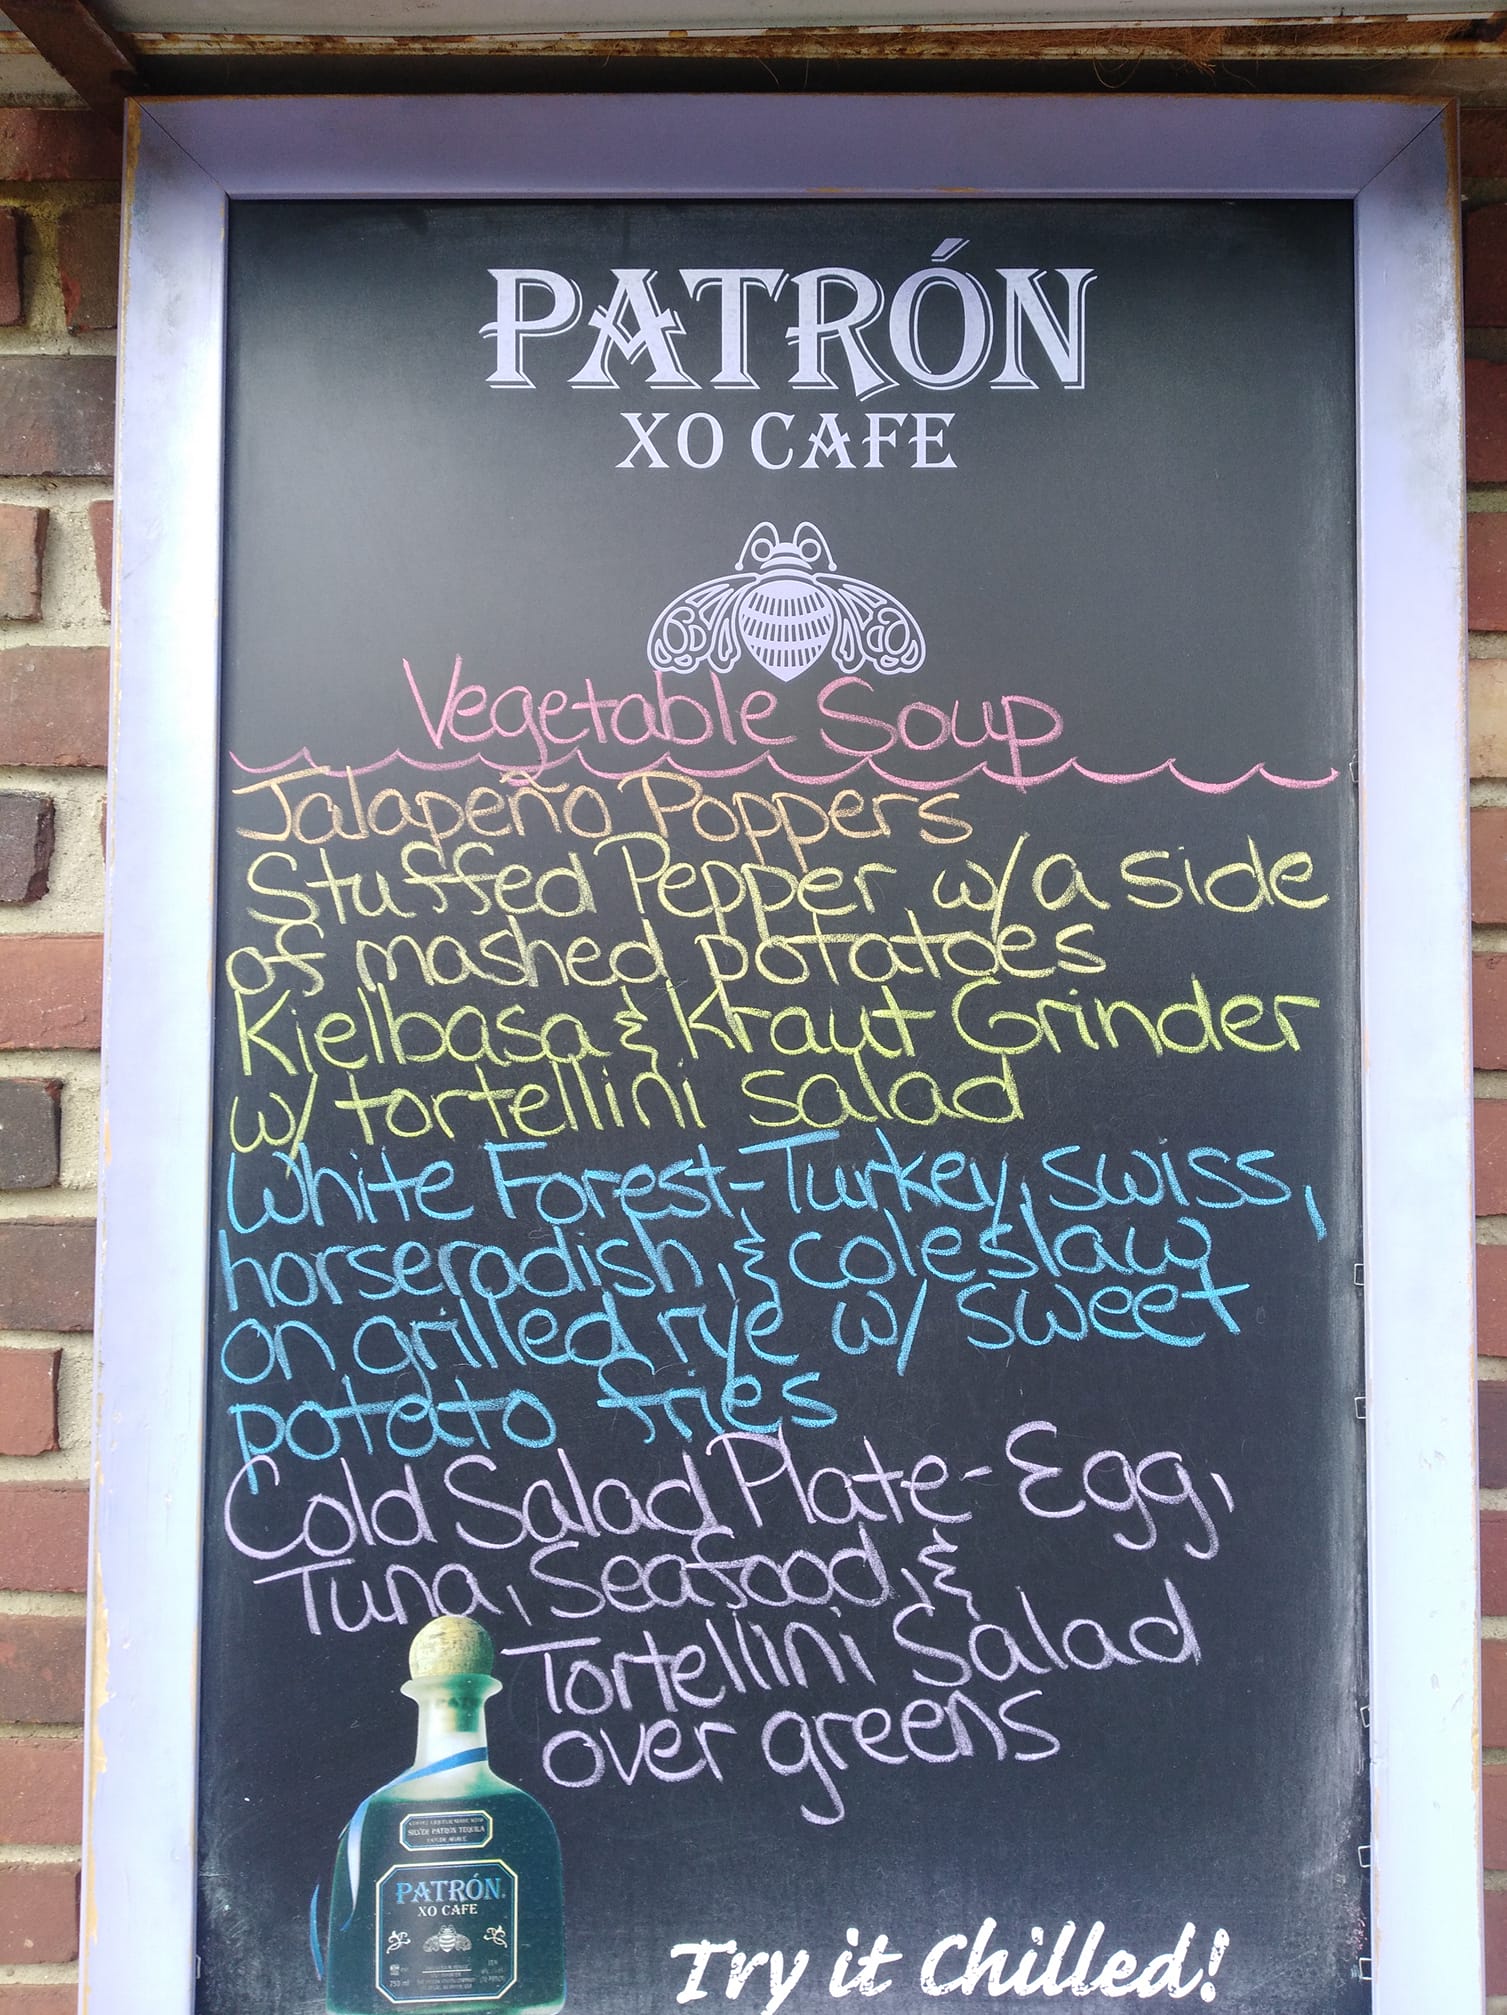 PATRÓN
XO CAFE
Vegetable Soup
Jalapeño Poppers
Stuffed Pepper w/a side
of mashed potatoes
Kielbasa & Kraut Grinder
w/ tortellini salad
White Forest-Turkey, swiss,
horseradish, & coleslaw
on grilled rye w/ sweet
potato fries
Cold Salad Plate-Egg,
Tuna, Seafood, &
Tortellini Salad
over greens
SILVER PATRÓN TEQUILA
PATRÓN
XO CAFE
750 ml
Try it Chilled!